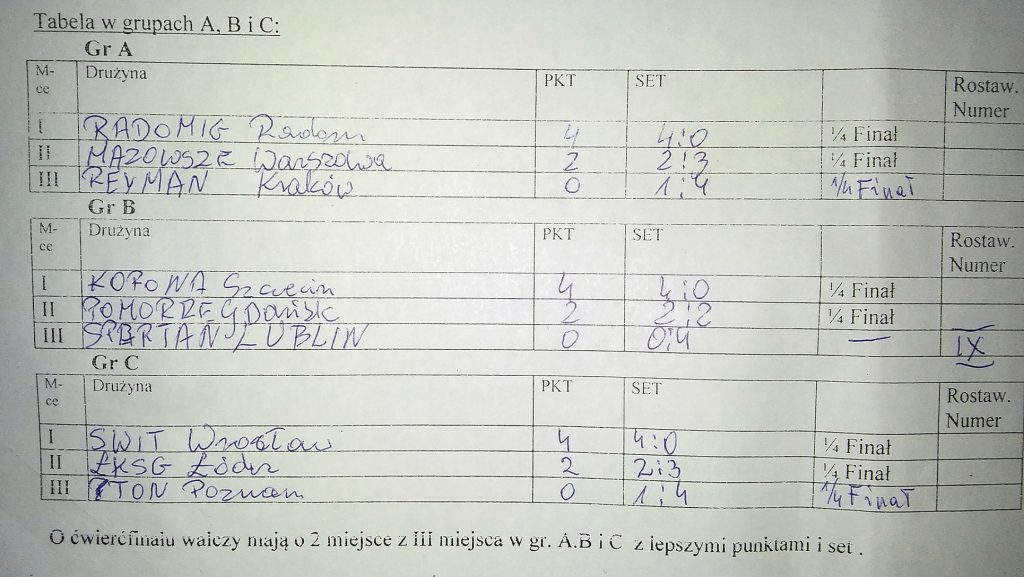 Tabela w grupach A, B i C:
Gr A
M-ce Drużyna PKT SET Rostaw. Numer
I RADOMIG Radom 4 4:0 ¼ Finał
II MAZOWSZE Warszawa 2 2:3 ¼ Finał
III REYMAN Kraków 0 1:4 1/4 Finał
Gr B
M-ce Drużyna PKT SET Rostaw. Numer
I KOROWA Szczecin 4 4:0 ¼ Finał
II POMORZE Gdańsk 2 2:2 ¼ Finał
III SPARTAN LUBLIN 0 0:4 — IX
Gr C
M-ce Drużyna PKT SET Rostaw. Numer
I SWIT Wrosław 4 4:0 ¼ Finał
II ŁKSG Łódz 2 2:3 ¼ Finał
III TON Poznam 0 1:4 1/4 Finał
O ćwierćfinału walczy mają o 2 miejsce z III miejsca w gr. A.B i C z lepszymi punktami i set .